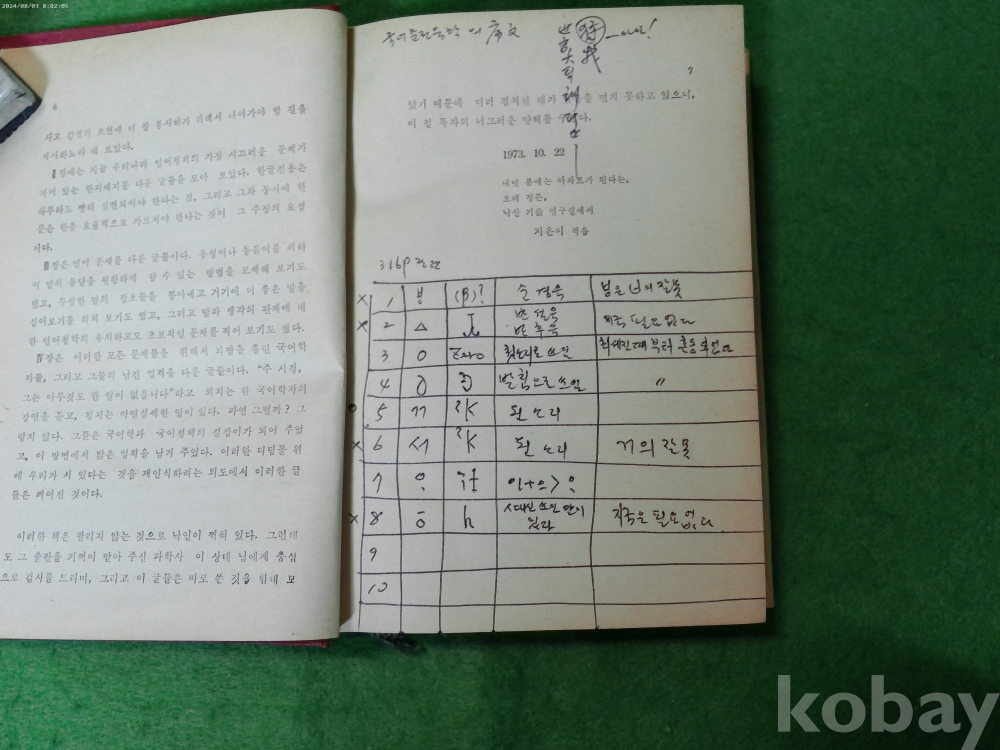 2024/08/03 8:02:05
6
시고 감정의 표현에 더 잘 봉사하기 위해서 나아가야 할 길을
제시하노라 해 보았다.
장에는 지금 우리나라 언어정치의 가장 시끄러운 문제가
되어 있는 한자폐지를 다룬 글들을 모아 보았다. 한글전용은
하루라도 빨리 실현되어야 한다는 것, 그리고 그와 동시에 한
문은 한층 효율적으로 가르쳐야 한다는 것이 그 주장의 요점
이다.
장은 언어 문제를 다룬 글들이다. 동철이나 동음어를 피하
여 말의 통달을 원활하게 할 수 있는 방법을 모색해 보기도
했고, 무성한 말의 잡초들을 뽑아내고 거기에 더 좋은 말을
심어보기를 외쳐 보기도 했고, 그리고 말과 생각의 관계에 대
한 언어철학의 유치하고도 초보적인 문제를 적어 보기도 했다.
장은 이러한 모든 문제들을 위해서 피땀을 흘린 국어학
자들, 그리고 그들의 남긴 업적을 다룬 글들이다. “주 시경,
그는 아무것도 한 일이 없읍니다”라고 외치는 한 국어학자의
강연을 듣고, 필자는 아연실색한 일이 있다. 과연 그럴까? 그
렇지 않다. 그들은 국어학과 국어정책의 길잡이가 되어 주었
고, 이 방면에서 많은 업적을 남겨 주었다. 이러한 디딤돌 위
에 우리가 서 있다는 것을 재인식하려는 의도에서 이러한 글
들은 씌어진 것이다.
이러한 책은 팔리지 않는 것으로 낙인이 찍혀 있다. 그런데
도 그 출판을 기꺼이 맡아 주신 과학사 이 상태 님에게 충심
으로 감사를 드리며, 그리고 이 글들은 따로 쓴 것을 한데 모
序文
7
았기 때문에 더러 겹쳐진 데가 을 면치 못하고 있으니,
이 점 독자의 너그러운 양해를 다.
1973. 10. 22
내년 봄에는 아파트가 된다는,
오래 정든,
낙산 기슭 연구실에서
지은이 적음
316P
× 1 (β)? 순경음
× 2 ㅿ 반설음 지금 필요없다
반후음
3 ㅇ Zero
4 ㆁ 받침으로 쓰임 〃
5 ㄲ ʔk 된소리
× 6 ㅺ ʔk 된소리 거의 잘못
7
× 8 ㆆ h 있다 지금은 필요없다
9
10
kobay